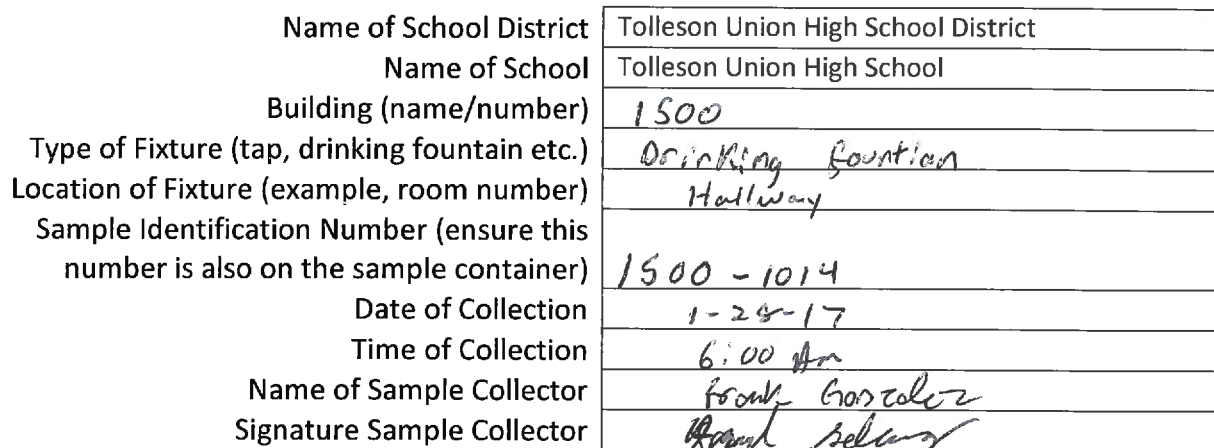 Name of School District Tolleson Union High School District
Name of School Tolleson Union High School
Building (name/number) 1500
Type of Fixture (tap, drinking fountain etc.) Drinking fountian
Location of Fixture (example, room number) Hallway
Sample Identification Number (ensure this
number is also on the sample container) 1500-1014
Date of Collection 1-28-17
Time of Collection 6:00 Am
Name of Sample Collector Frank Gonzalez
Signature Sample Collector